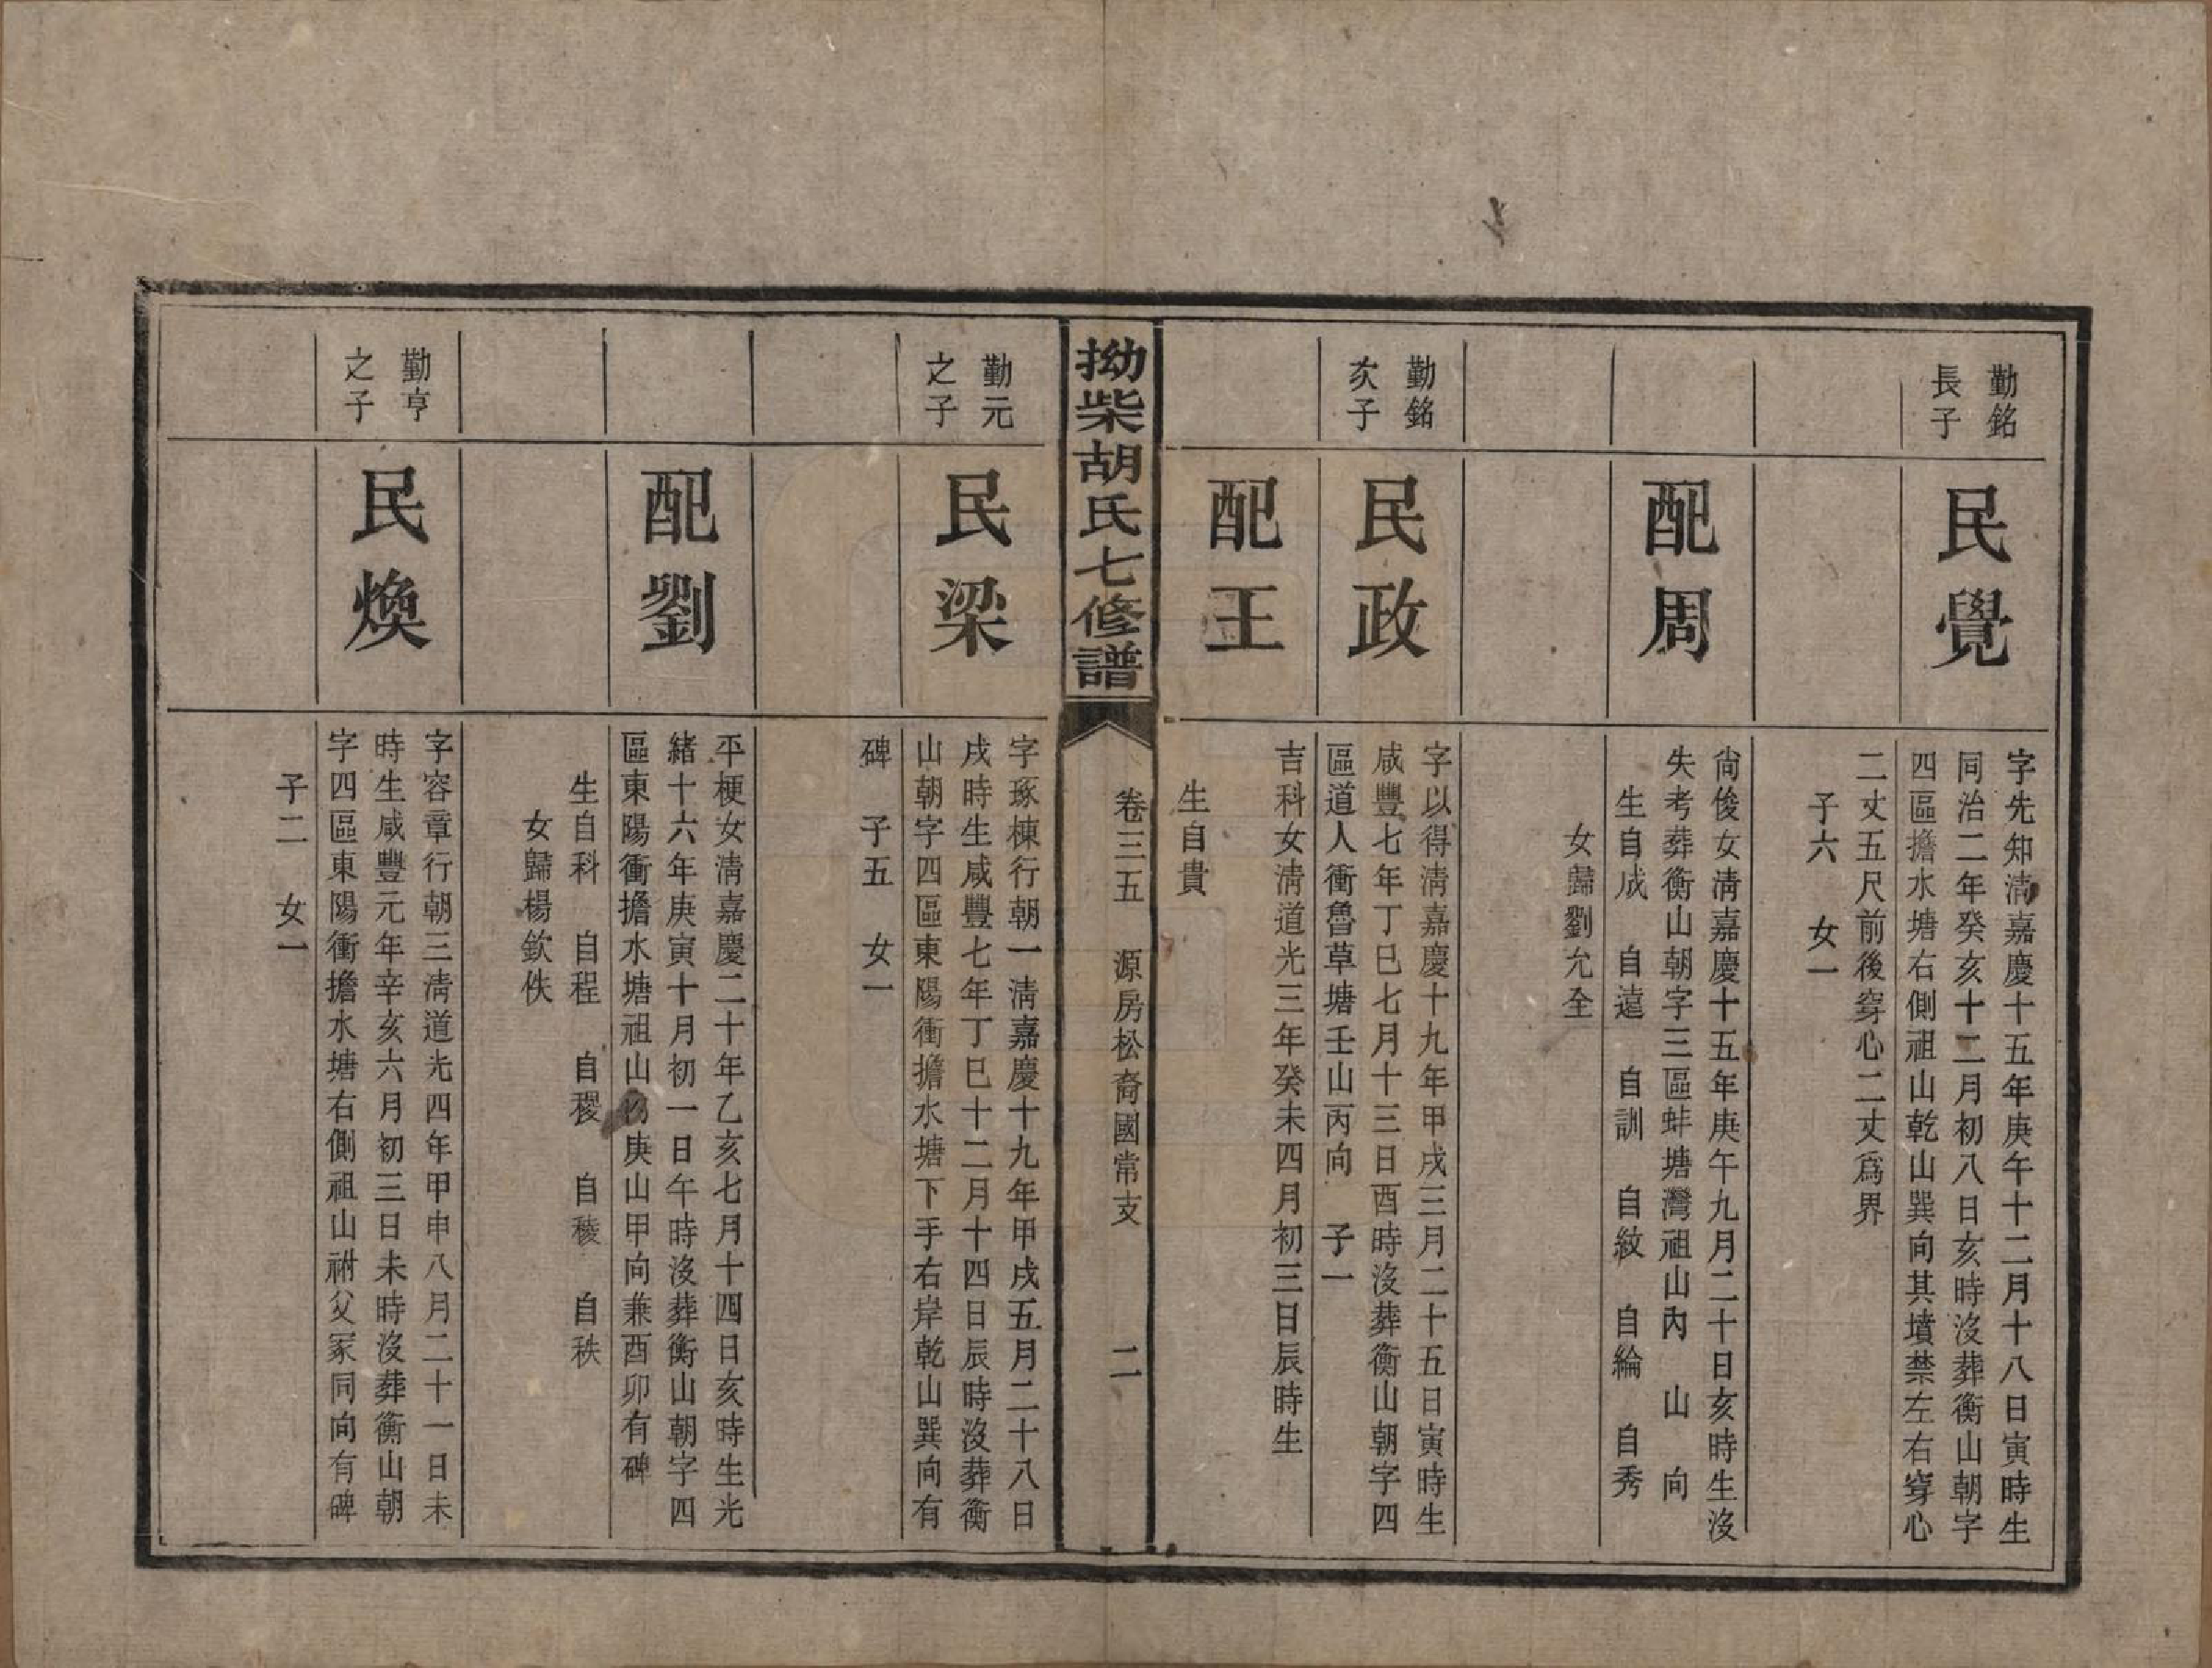 勤銘
長子
民覺
字先知清嘉慶十五年庚午十二月十八日寅時生
同治二年癸亥十二月初八日亥時沒葬衡山朝字
四區擔水塘右側祖山乾山巽向其墳禁左右穿心
二丈五尺前後穿心二丈為界
子六 女一
配周
尙俊女清嘉慶十五年庚午九月二十日亥時生沒
失考葬衡山朝字三區蚌塘灣祖山內 山 向
生自成 自遠 自訓 自紋 自綸 自秀
女歸劉允全
勤銘
次子
民政
字以得清嘉慶十九年甲戌三月二十五日寅時生
咸豐七年丁巳七月十三日酉時沒葬衡山朝字四
區道人衝魯草塘壬山丙向 子一
配王
吉科女清道光三年癸未四月初三日辰時生
生自貴
拗柴胡氏七修譜
卷三五 源房松裔國常支 二
勤元
之子
民梁
字琢棟行朝一清嘉慶十九年甲戌五月二十八日
戌時生咸豐七年丁巳十二月十四日辰時沒葬衡
山朝字四區東陽衝擔水塘下手右岸乾山巽向有
碑 子五 女一
配劉
平梗女清嘉慶二十年乙亥七月十四日亥時生光
緒十六年庚寅十月初一日午時沒葬衡山朝字四
區東陽衝擔水塘祖山 庚山甲向兼酉卯有碑
生自科 自程 自稷 自稜 自秩
女歸楊欽佚
勤亨
之子
民煥
字容章行朝三清道光四年甲申八月二十一日未
時生咸豐元年辛亥六月初三日未時沒葬衡山朝
字四區東陽衝擔水塘右側祖山祔父冢同向有碑
子二 女一